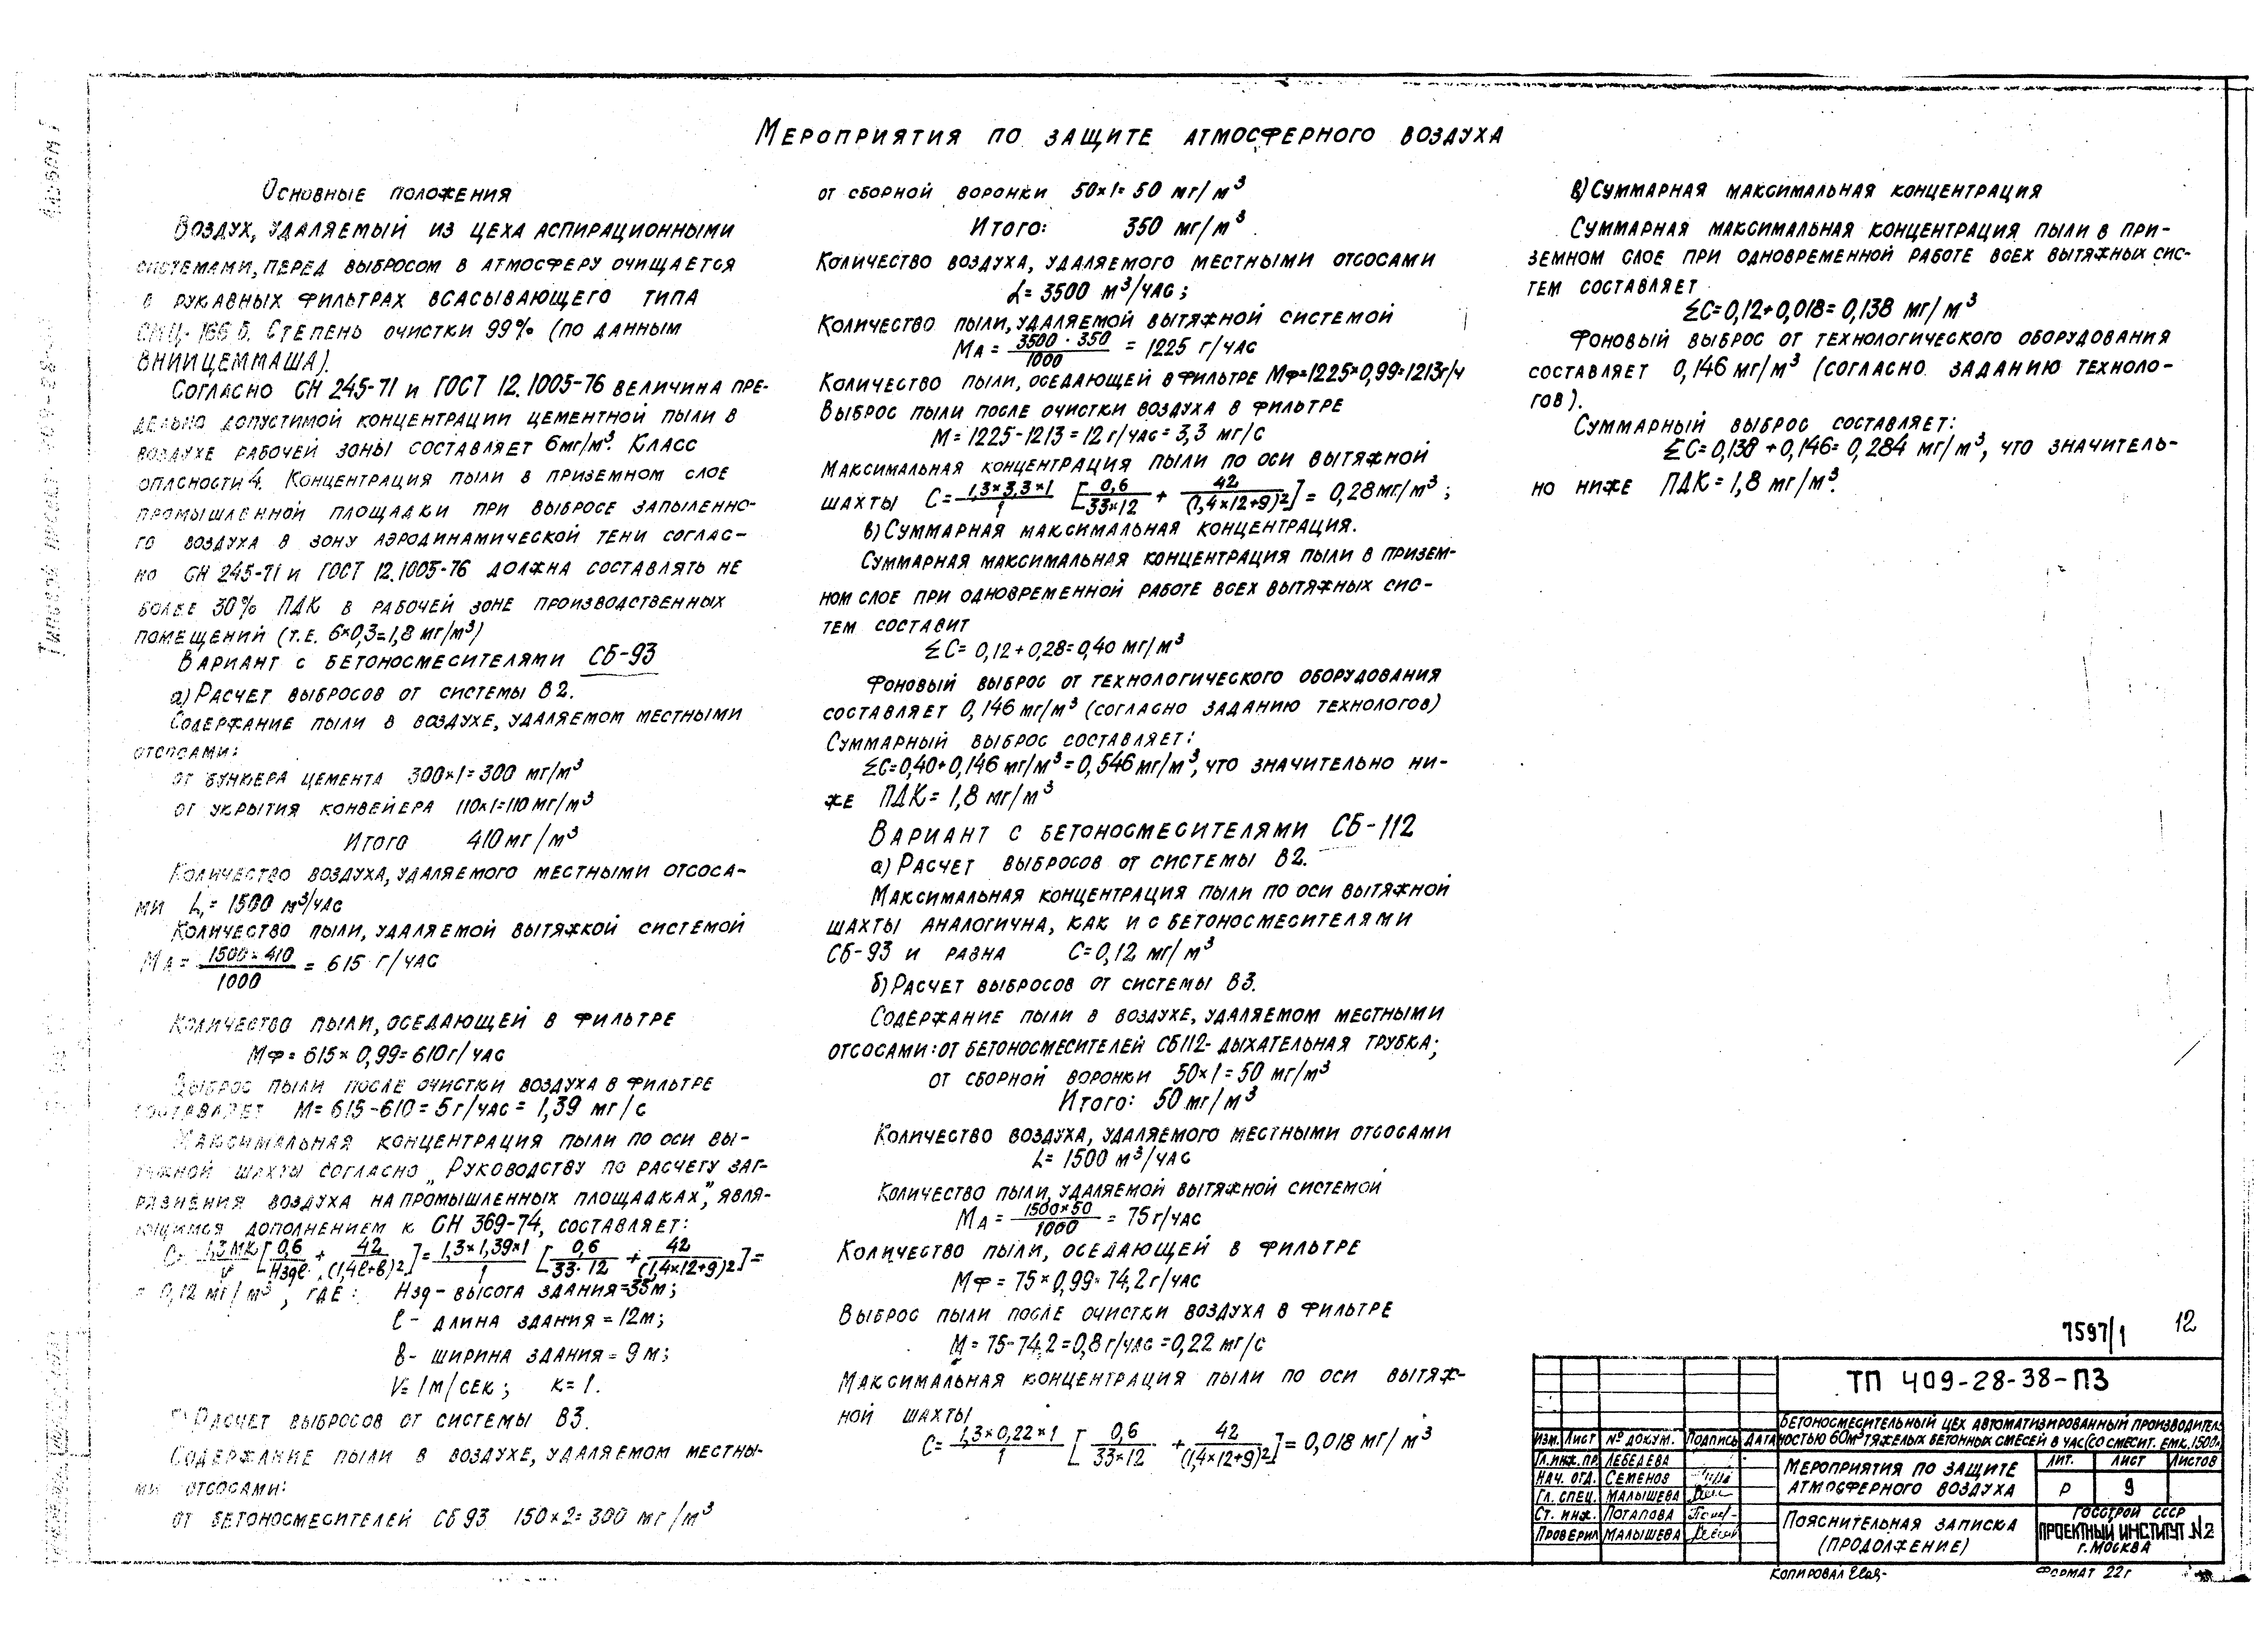 Альбом I
Типовой проект 409-28-38
Мероприятия по защите атмосферного воздуха
Основные положения
Воздух, удаляемый из цеха аспирационными
системами, перед выбросом в атмосферу очищается
в рукавных фильтрах всасывающего типа
СМЦ-166 Б. Степень очистки 99% (по данным
ВНИИЦЕММАША).
Согласно СН 245-71 и ГОСТ 12.1005-76 величина пре-
дельно допустимой концентрации цементной пыли в
воздухе рабочей зоны составляет 6мг/м³. Класс
опасности 4. Концентрация пыли в приземном слое
промышленной площадки при выбросе запыленно-
го воздуха в зону аэродинамической тени соглас-
но СН 245-71 и ГОСТ 12.1005-76 должна составлять не
более 30% ПДК в рабочей зоне производственных
помещений (т.е. 6×0,3=1,8 мг/м³)
Вариант с бетоносмесителями СБ-93
а) Расчет выбросов от системы В2.
Содержание пыли в воздухе, удаляемом местными
отсосами:
от бункера цемента 300×1=300 мг/м³
от укрытия конвейера 110×1=110 мг/м³
Итого 410 мг/м³
Количество воздуха, удаляемого местными отсоса-
ми L,= 1500 м³/час
Количество пыли, удаляемой вытяжкой системой
Mа = 1500×410 / 1000 = 615 г/час
Количество пыли, оседающей в фильтре
Mф = 615×0,99=610г/час
Выброс пыли после очистки воздуха в фильтре
составляет M=615-610=5г/час=1,39 мг/с
Максимальная концентрация пыли по оси вы-
тяжной шахты согласно „Руководству по расчету заг-
разнения воздуха на промышленных площадках", явля-
ющимся дополнением к СН 369-74, составляет:
C= 1,3MK/V [0,6/Hздℓ + 42/(1,4ℓ+в)²] = 1,3×1,39×1/1 [0,6/33·12 + 42/(1,4×12+9)²] =
= 0,12 мг/м³, где: Hзд - высота здания=33м;
ℓ - длина здания = 12м;
в - ширина здания = 9м;
V=1м/сек; к=1.
б) Расчет выбросов от системы В3.
Содержание пыли в воздухе, удаляемом местны-
ми отсосами:
от бетоносмесителей СБ93 150×2=300 мг/м³
от сборной воронки 50×1=50 мг/м³
Итого: 350 мг/м³.
Количество воздуха, удаляемого местными отсосами
L= 3500 м³/час;
Количество пыли, удаляемой вытяжной системой
Mа = 3500·350 / 1000 = 1225 г/час
Количество пыли, оседающей в фильтре Mф=1225×0,99=1213г/ч
Выброс пыли после очистки воздуха в фильтре
M=1225-1213=12г/час=3,3 мг/с
Максимальная концентрация пыли по оси вытяжной
шахты C= 1,3×3,3×1/1 [0,6/33×12 + 42/(1,4×12+9)²] = 0,28мг/м³;
в) Суммарная максимальная концентрация.
Суммарная максимальная концентрация пыли в призем-
ном слое при одновременной работе всех вытяжных сис-
тем составит
ΣC= 0,12+0,28=0,40 мг/м³
Фоновый выброс от технологического оборудования
составляет 0,146 мг/м³ (согласно заданию технологов)
Суммарный выброс составляет:
ΣC=0,40+0,146 мг/м³=0,546мг/м³, что значительно ни-
же ПДК= 1,8 мг/м³
Вариант с бетоносмесителями СБ-112
а) Расчет выбросов от системы В2.
Максимальная концентрация пыли по оси вытяжной
шахты аналогична, как и с бетоносмесителями
СБ-93 и равна C=0,12 мг/м³
б) Расчет выбросов от системы В3.
Содержание пыли в воздухе, удаляемом местными
отсосами: от бетоносмесителей СБ112- дыхательная трубка;
от сборной воронки 50×1=50 мг/м³
Итого: 50мг/м³
Количество воздуха, удаляемого местными отсосами
L= 1500 м³/час
Количество пыли, удаляемой вытяжной системой
Mа = 1500×50 / 1000 = 75г/час
Количество пыли, оседающей в фильтре
Mф = 75×0,99=74,2г/час
Выброс пыли после очистки воздуха в фильтре
M=75-74,2=0,8г/час=0,22 мг/с
Максимальная концентрация пыли по оси вытяж-
ной шахты
C= 1,3×0,22×1/1 [0,6/33×12 + 42/(1,4×12+9)²] = 0,018 мг/м³
в) Суммарная максимальная концентрация
Суммарная максимальная концентрация пыли в при-
земном слое при одновременной работе всех вытяжных сис-
тем составляет
ΣC=0,12+0,018=0,138 мг/м³
Фоновый выброс от технологического оборудования
составляет 0,146 мг/м³ (согласно заданию техноло-
гов).
Суммарный выброс составляет:
ΣC=0,138+0,146=0,284 мг/м³, что значитель-
но ниже ПДК=1,8 мг/м³.
7597/1 12
ТП 409-28-38-ПЗ
Бетоносмесительный цех автоматизированный производитель-
ностью 60м³ тяжелых бетонных смесей в час (со смесит. емк. 1500л)
Изм. Лист № докум. Подпись Дата
Гл.инж.пр. Лебедева
Нач. отд. Семенов
Гл. спец. Малышева
Ст. инж. Потапова
Проверил Малышева
Мероприятия по защите
атмосферного воздуха
Лит. Лист Листов
Р 9
Пояснительная записка
(продолжение)
ГОССТРОЙ СССР
ПРОЕКТНЫЙ ИНСТИТУТ №2
г. Москва
Копировал
Формат 22г